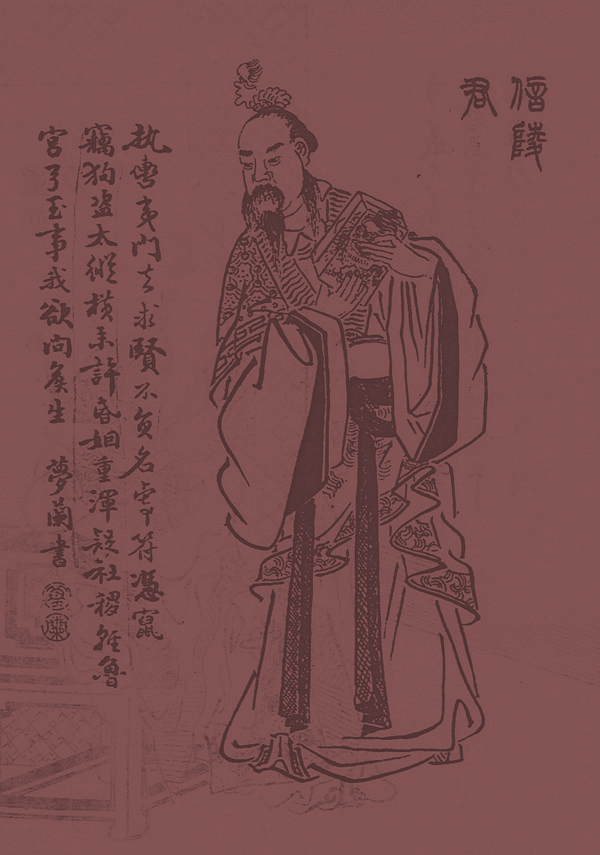 信陵
君
執轡夷門去求賢不負名軍符憑竄
竊狗盜太縱橫未許昏姻重渾疑社稷輕魯
宮了事我欲問侯生 夢蘭書